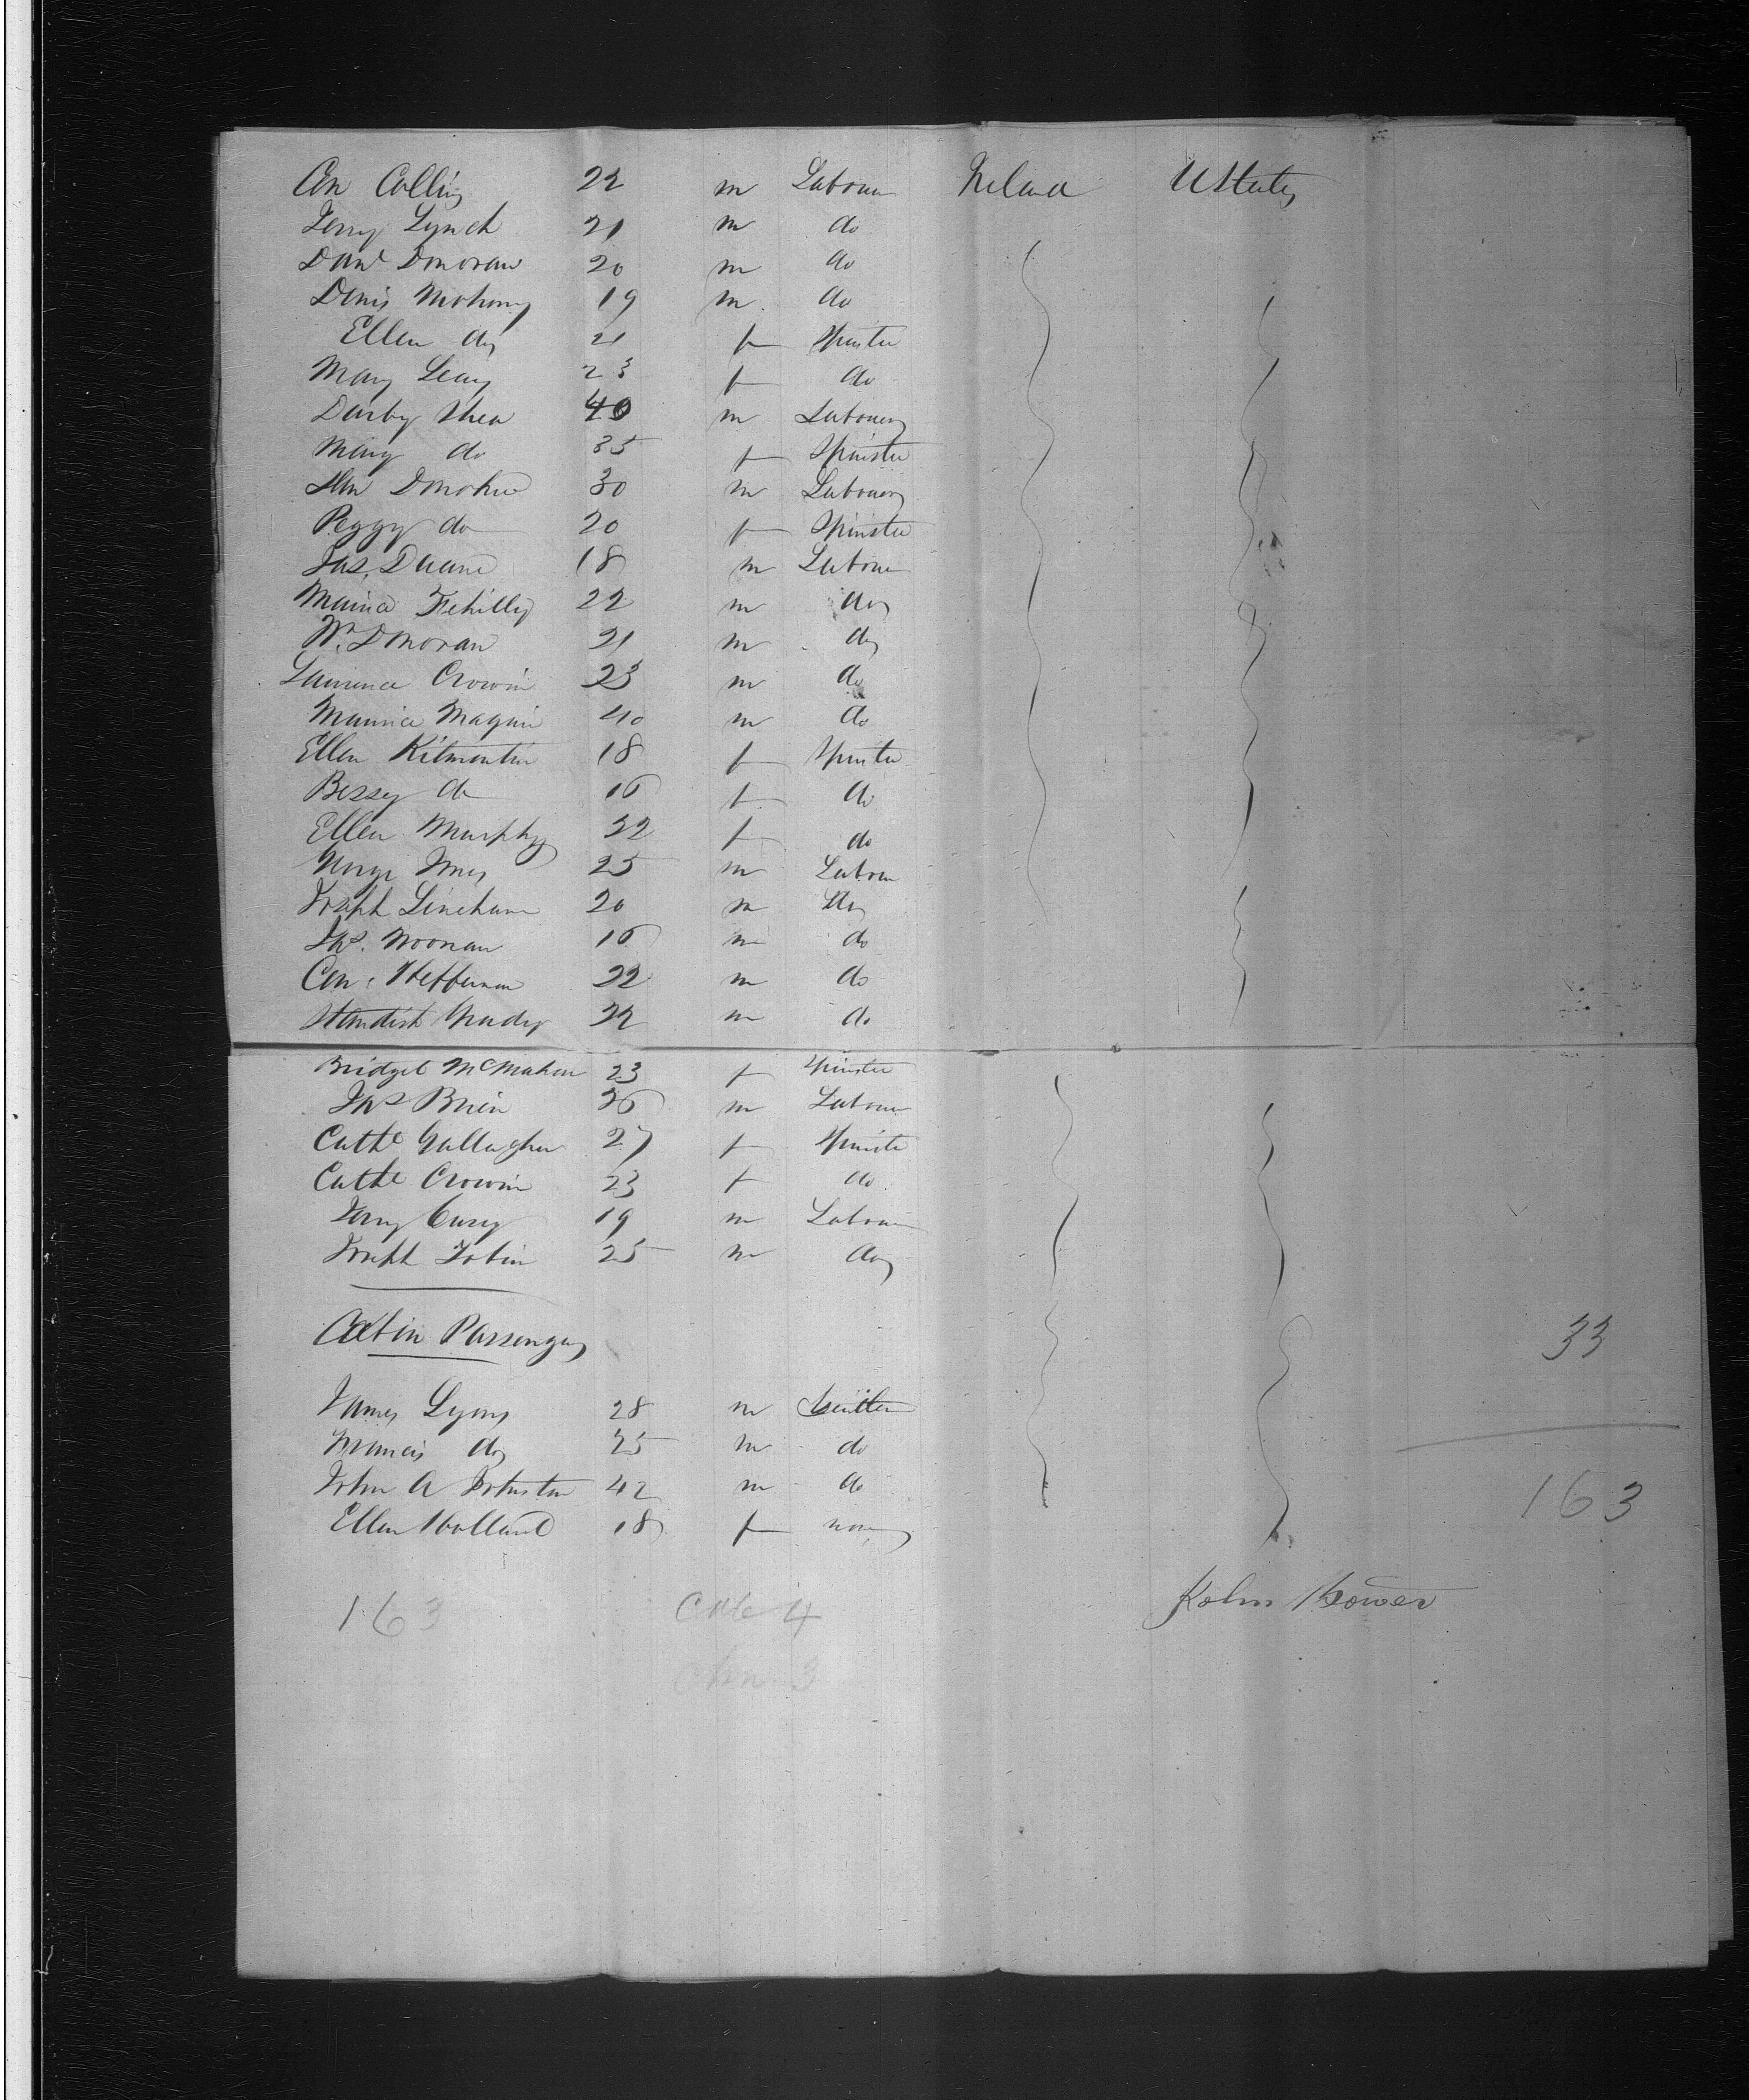 Con Collins 22 m Labourer Ireland UStates
Jerry Lynch 21 m do
Danl Donovan 20 m do
Denis Mahony 19 m do
Ellen do 21 f Spinster
Mary Leary 23 f do
Darby Shea 40 m Labourer
Mary do 35 f Spinster
Dan Donohue 30 m Labourer
Peggy do 20 f Spinster
Jas. Duane 18 m Labourer
Maurice Fehilly 22 m do
Wm Donovan 21 m do
Laurence Crowin 23 m do
Maurice Maguire 40 m do
Ellen Kilmartin 18 f Spinster
Bessy do 16 f do
Ellen Murphy 22 f do
25 m Labour
Joseph Linehan 20 m do
Jas. Noonan 16 m do
Con. Heffernan 22 m do
Standish Grady 22 m do
Bridget McMahon 23 f Spinster
Jas Brien 26 m Labour
Cathe Gallagher 27 f Spinster
Cathe Crowin 23 f do
Jerry Carey 19 m Labour
Joseph Tobin 25 m do
Cabin Passengers
33
James Lyons 28 m
Francis do 25 m do
John A Johnston 42 m do
163
Ellen Holland 18 f none
John Bower
163 Cab 4
3